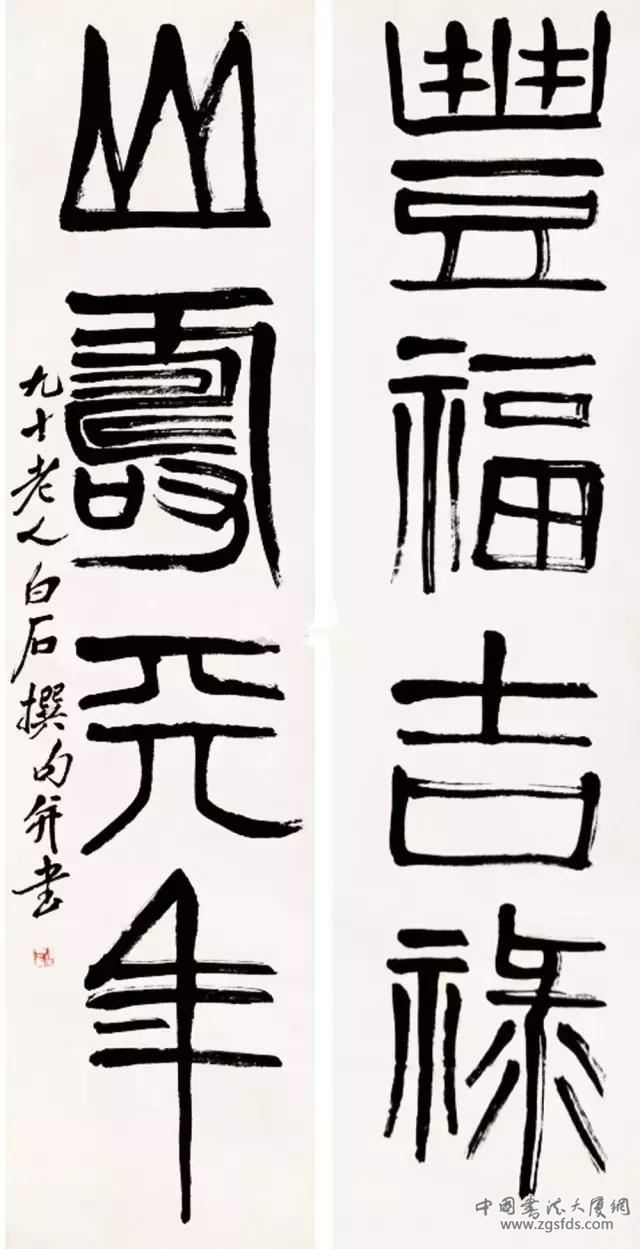 豐福吉祿
山壽天年
九十老人白石撰句并書
中國書法大廈網
www.zgsfds.com